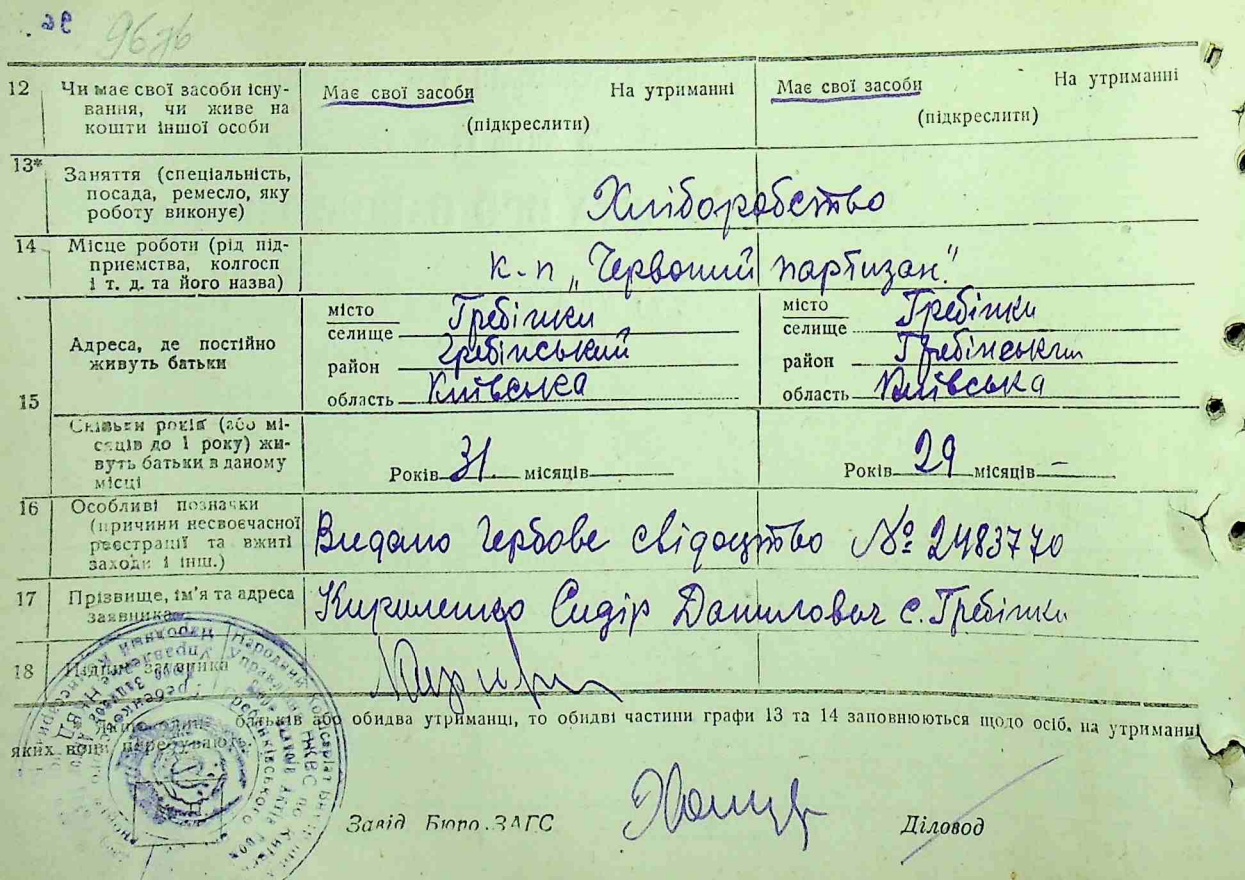 96зв
12 Чи має свої засоби існу-
вання, чи живе на
кошти іншої особи
Має свої засоби На утриманні
(підкреслити)
Має свої засоби На утриманні
(підкреслити)
13* Заняття (спеціальність,
посада, ремесло, яку
роботу виконує)
Хліборобство
14 Місце роботи (рід під-
приємства, колгосп
і т. д. та його назва)
к-п „Червоний партизан"
15 Адреса, де постійно
живуть батьки
місто
селище Гребінки
район Гребінський
область Київська
місто
селище Гребінки
район Гребінський
область Київська
Скільки років (або мі-
сяців до 1 року) жи-
вуть батьки в даному
місці
Років 31 місяців
Років 29 місяців –
16 Особливі позначки
(причини несвоєчасної
реєстрації та вжиті
заходи і інш.)
Видано гербове свідоцтво № 2483770
17 Прізвище, ім'я та адреса
заявника
Кириленко Сидір Данилович с. Гребінки
18 Підпис заявника
батьків або обидва утриманці, то обидві частини графи 13 та 14 заповнюються щодо осіб, на утриманні
яких вони перебувають.
Завід Бюро ЗАГС Діловод